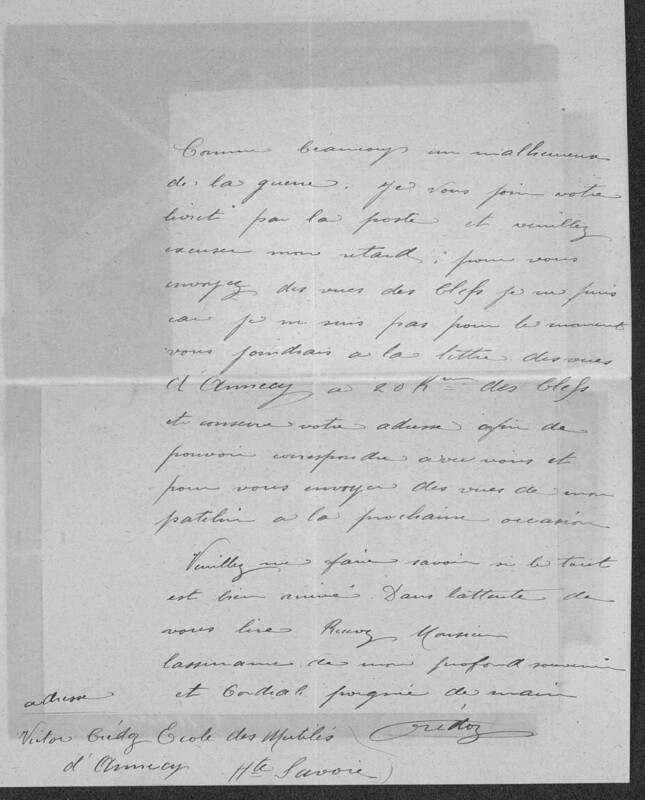 Comme beaucoup un malheureux
de la guerre. Je vous join votre
livret par la poste et veuillez
excuser mon retard ; pour vous
envoyez des vues des Clefs je ne puis
car je ni suis pas pour le moment
vous joindrais a la lettre des vues
d'Annecy a 20 Km des Clefs
et conserve votre adresse afin de
pouvoir correspondre avec vous et
pour vous envoyer des vues de mon
patelin a la prochaine occasion
Veuillez me faire savoir si le tout
est bien arrivé Dans l'attente de
vous lire Recevez Monsieur
lassurance de mon profond souvenir
et Cordiale poignée de main
adresse
Crédoz
Victor Crédoz Ecole des Mutilés
d'Annecy Hte Savoie)